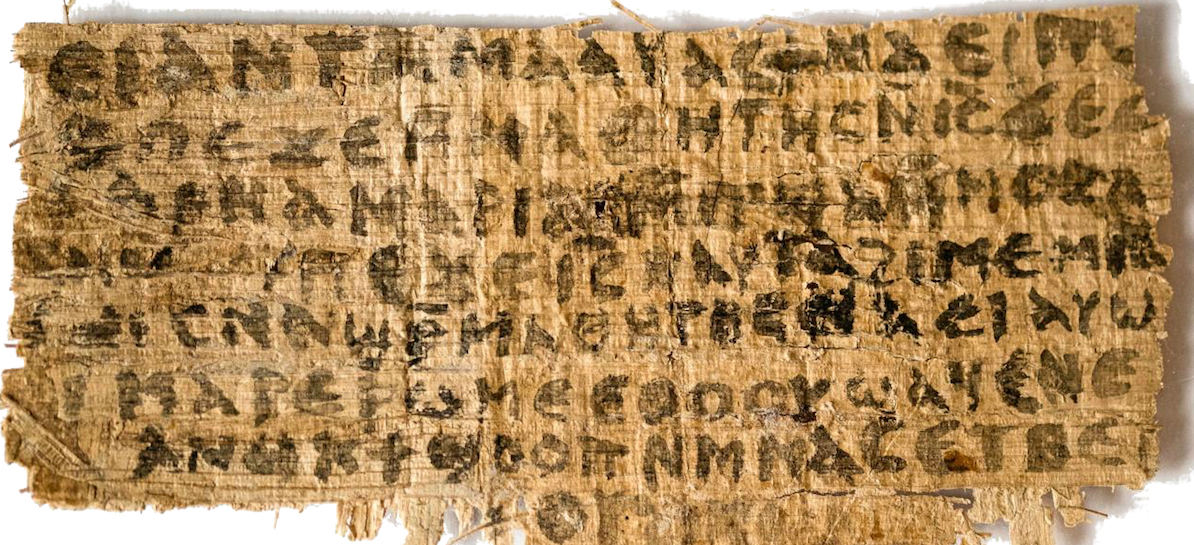 ⲉⲓ ⲁⲛ ⲧⲁⲙⲁⲁⲩ ⲁⲥϯ ⲛⲁⲉⲓ
ⲡⲉϫⲉ ⲙⲙⲁⲑⲏⲧⲏⲥ ⲛⲓ̅ⲥ̅ ϫⲉ ⲥ
ⲁⲣⲛⲁ ⲙⲁⲣⲓⲁⲙ ⲙⲡϣⲁ ⲙⲙⲟⲥ ⲁ
ⲡⲉϫⲉ ⲓ̅ⲥ̅ ⲛⲁⲩ ⲧⲁϩⲓⲙⲉ ⲙⲛ̅
ⲥⲛⲁϣⲣ̅ⲙⲁⲑⲏⲧⲏⲥ ⲛⲁⲉⲓ ⲁⲩⲱ
ⲓ ⲙⲁⲣⲉⲣⲱⲙⲉ ⲉⲑⲟⲟⲩ ϣⲁϥⲉⲛⲉ
ⲁⲛⲟⲕ ϯϣⲟⲟⲡ ⲛⲙⲙⲁⲥ ⲉⲧⲃⲉ